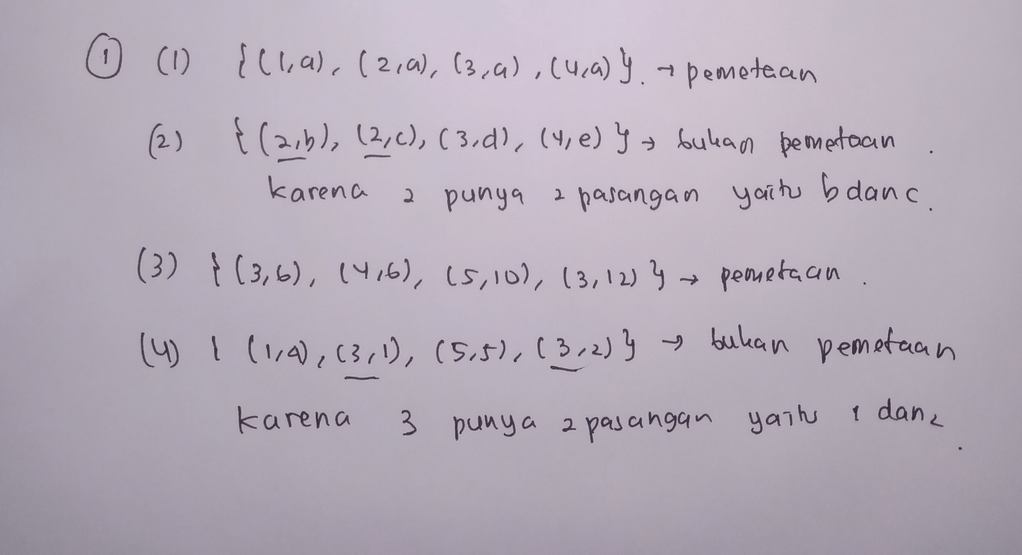 ① (1) {(1,a), (2,a), (3,a), (4,a)}. → pemetaan
(2) {(2,b), (2,c), (3,d), (4,e)} → bukan pemetaan.
karena 2 punya 2 pasangan yaitu b dan c.
(3) {(3,6), (4,6), (5,10), (3,12)} → pemetaan.
(4) { (1,4), (3,1), (5,5), (3,2)} → bukan pemetaan
karena 3 punya 2 pasangan yaitu 1 dan 2.